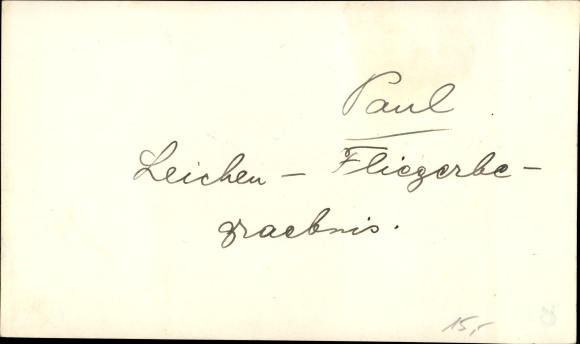 Paul
Leichen – Fliegerbe-
graebnis.
15,-